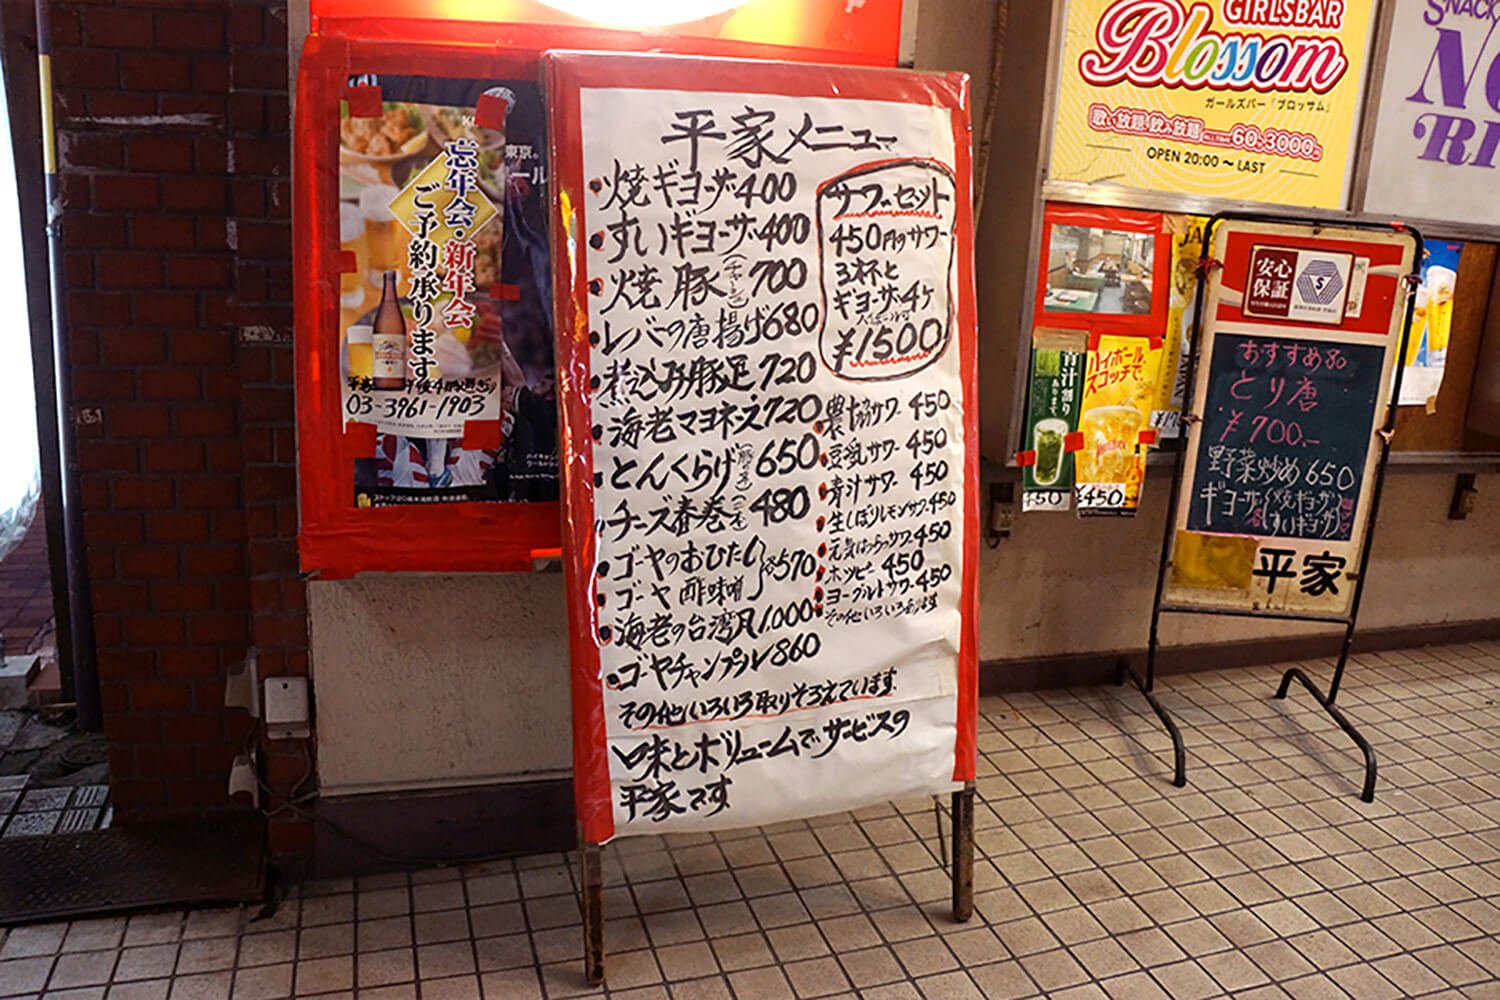 平家メニュー
焼ギヨーザ 400
すいギヨーザ 400
焼豚(チャーシュー) 700
レバーの唐揚げ 680
煮込み豚足 720
海老マヨネーズ 720
とんくらげ 650
チーズ春巻(二本) 480
ゴーヤのおひたし
ゴーヤ酢味噌 各570
海老の台湾風 1.000
ゴーヤチャンプラル 860
その他いろいろ取りそろえています
口味とボリュームでサービスの
平家です
サワーセット
450円のサワー
3杯と
ギヨーザ4ケ
¥1500
農協サワー 450
豆乳サワー 450
青汁サワー 450
生しぼりレモンサワー 450
元気はつらつサワー 450
ホッピー 450
ヨーグルトサワー 450
その他いろいろあります
忘年会・新年会
ご予約承ります
03-3961-1903
東京。
GIRLSBAR
Blossom
ガールズバー「ブロッサム」
歌い放題 飲み放題
60分3000円
OPEN 20:00 〜 LAST
SNACK
青汁割り
あります。
ハイボール、
スコッチで。
¥450
安心
保証
S
おすすめ
とり唐
¥700.-
野菜炒め 650
ギヨーザ(焼ギヨーザ)
(すいギヨーザ)
平家